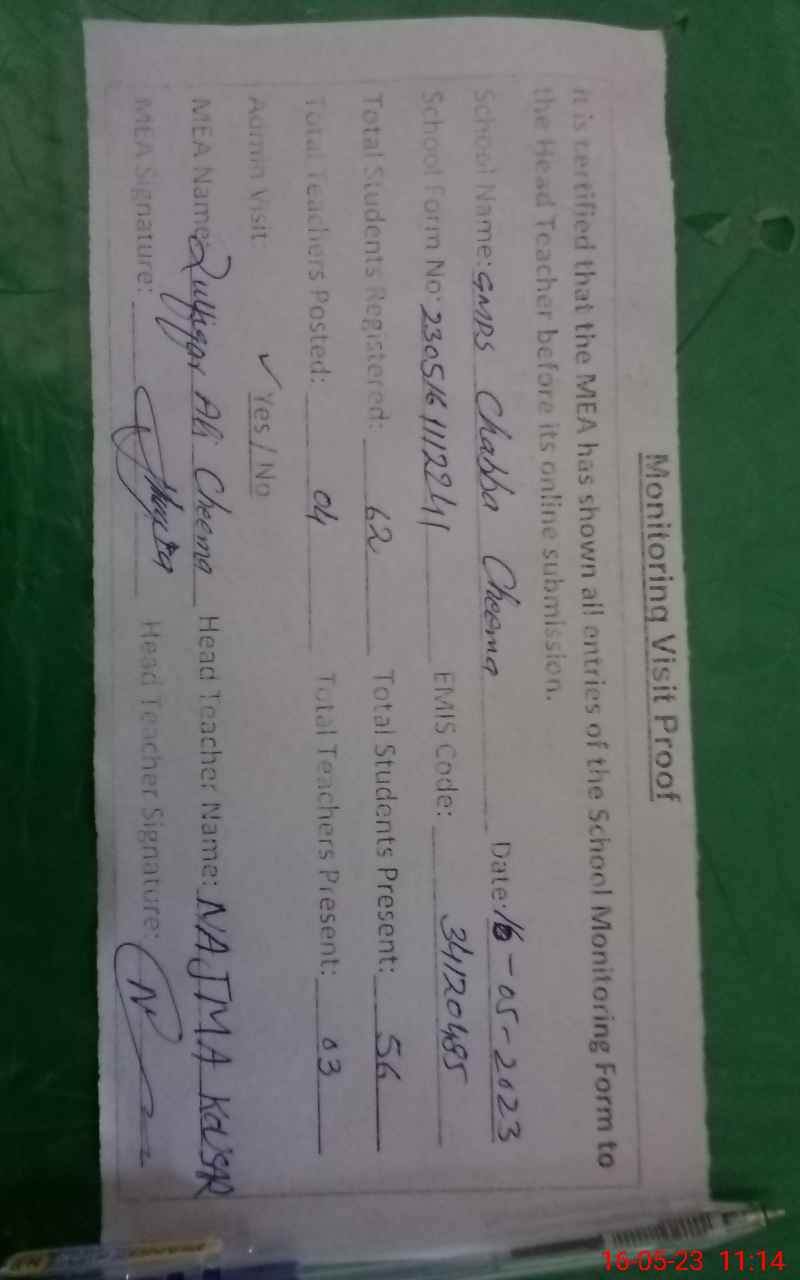 Monitoring Visit Proof
It is certified that the MEA has shown all entries of the School Monitoring Form to
the Head Teacher before its online submission.
School Name: GMPS Chabba Cheema Date: 16-05-2023
School Form No: 230516111224 EMIS Code: 34120485
Total Students Registered: 62 Total Students Present: 56
Total Teachers Posted: 04 Total Teachers Present: 03
Admin Visit ✓ Yes / No
MEA Name: Zulfiqar Ali Cheema Head Teacher Name: NAJMA KOUSAR
MEA Signature: Head Teacher Signature: N
16-05-23 11:14